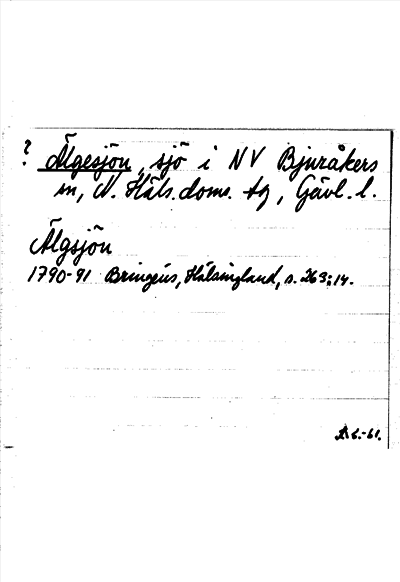 ? Älgesjön, sjö i NV Bjuråkers
sn, N. Häls. doms. tg, Gävl. l.
Älgsjön
1790-91 Bringéus, Hälsingland, s. 263; 14.